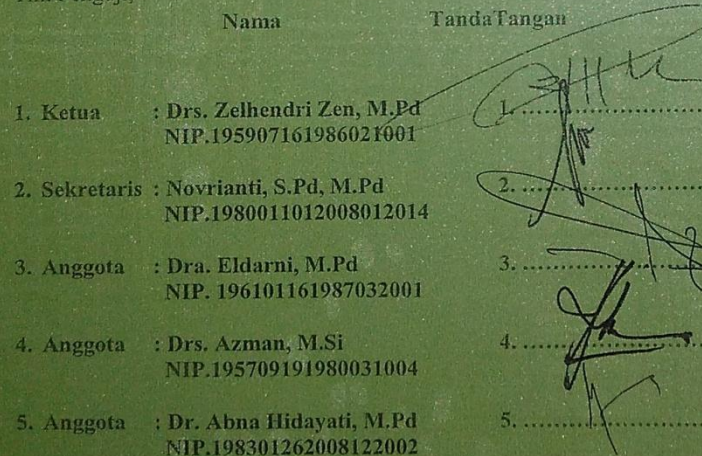 Nama TandaTangan
1. Ketua : Drs. Zelhendri Zen, M.Pd 1. ..................
NIP.195907161986021001
2. Sekretaris : Novrianti, S.Pd, M.Pd 2. ..................
NIP.1980011012008012014
3. Anggota : Dra. Eldarni, M.Pd 3. ..................
NIP. 196101161987032001
4. Anggota : Drs. Azman, M.Si 4. ..................
NIP.195709191980031004
5. Anggota : Dr. Abna Hidayati, M.Pd 5. ..................
NIP.198301262008122002